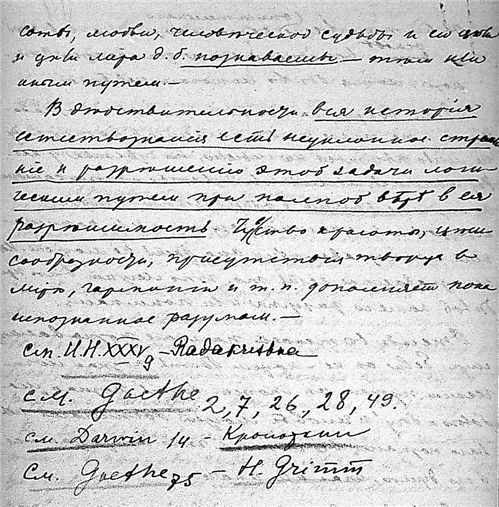 соты, любви, человеческой судьбы и ея цѣли
и цѣли мира д. б. познаваемы — тѣм или
иным путем. —
В действительности вся исторія
естествознанія есть неуклонное стремле
ніе к разрѣшенію этой задачи логи
ческим путем при полной вѣрѣ в ея
разрѣшимость Чувство красоты, цѣле
сообразности, присутствія творца в
мірѣ, гармоніи и т. п. дополняет пока
непознанное разумом. —
см. И.Н. XXXIV 9 — Radakrishna
см. Goethe 2, 7, 26, 28, 49.
см. Darwin 14 — Кропоткин
См. Goethe 75 — H. Grimm